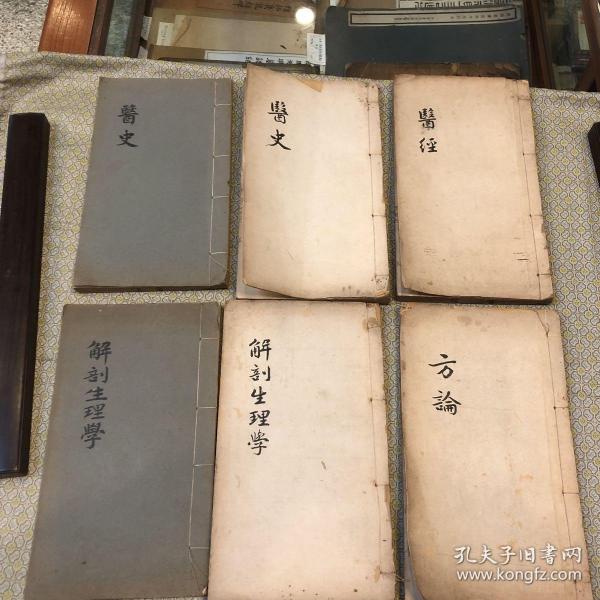 醫史
醫史
醫經
解剖生理學
解剖生理学
方論
孔夫子旧书网
www.kongfz.com